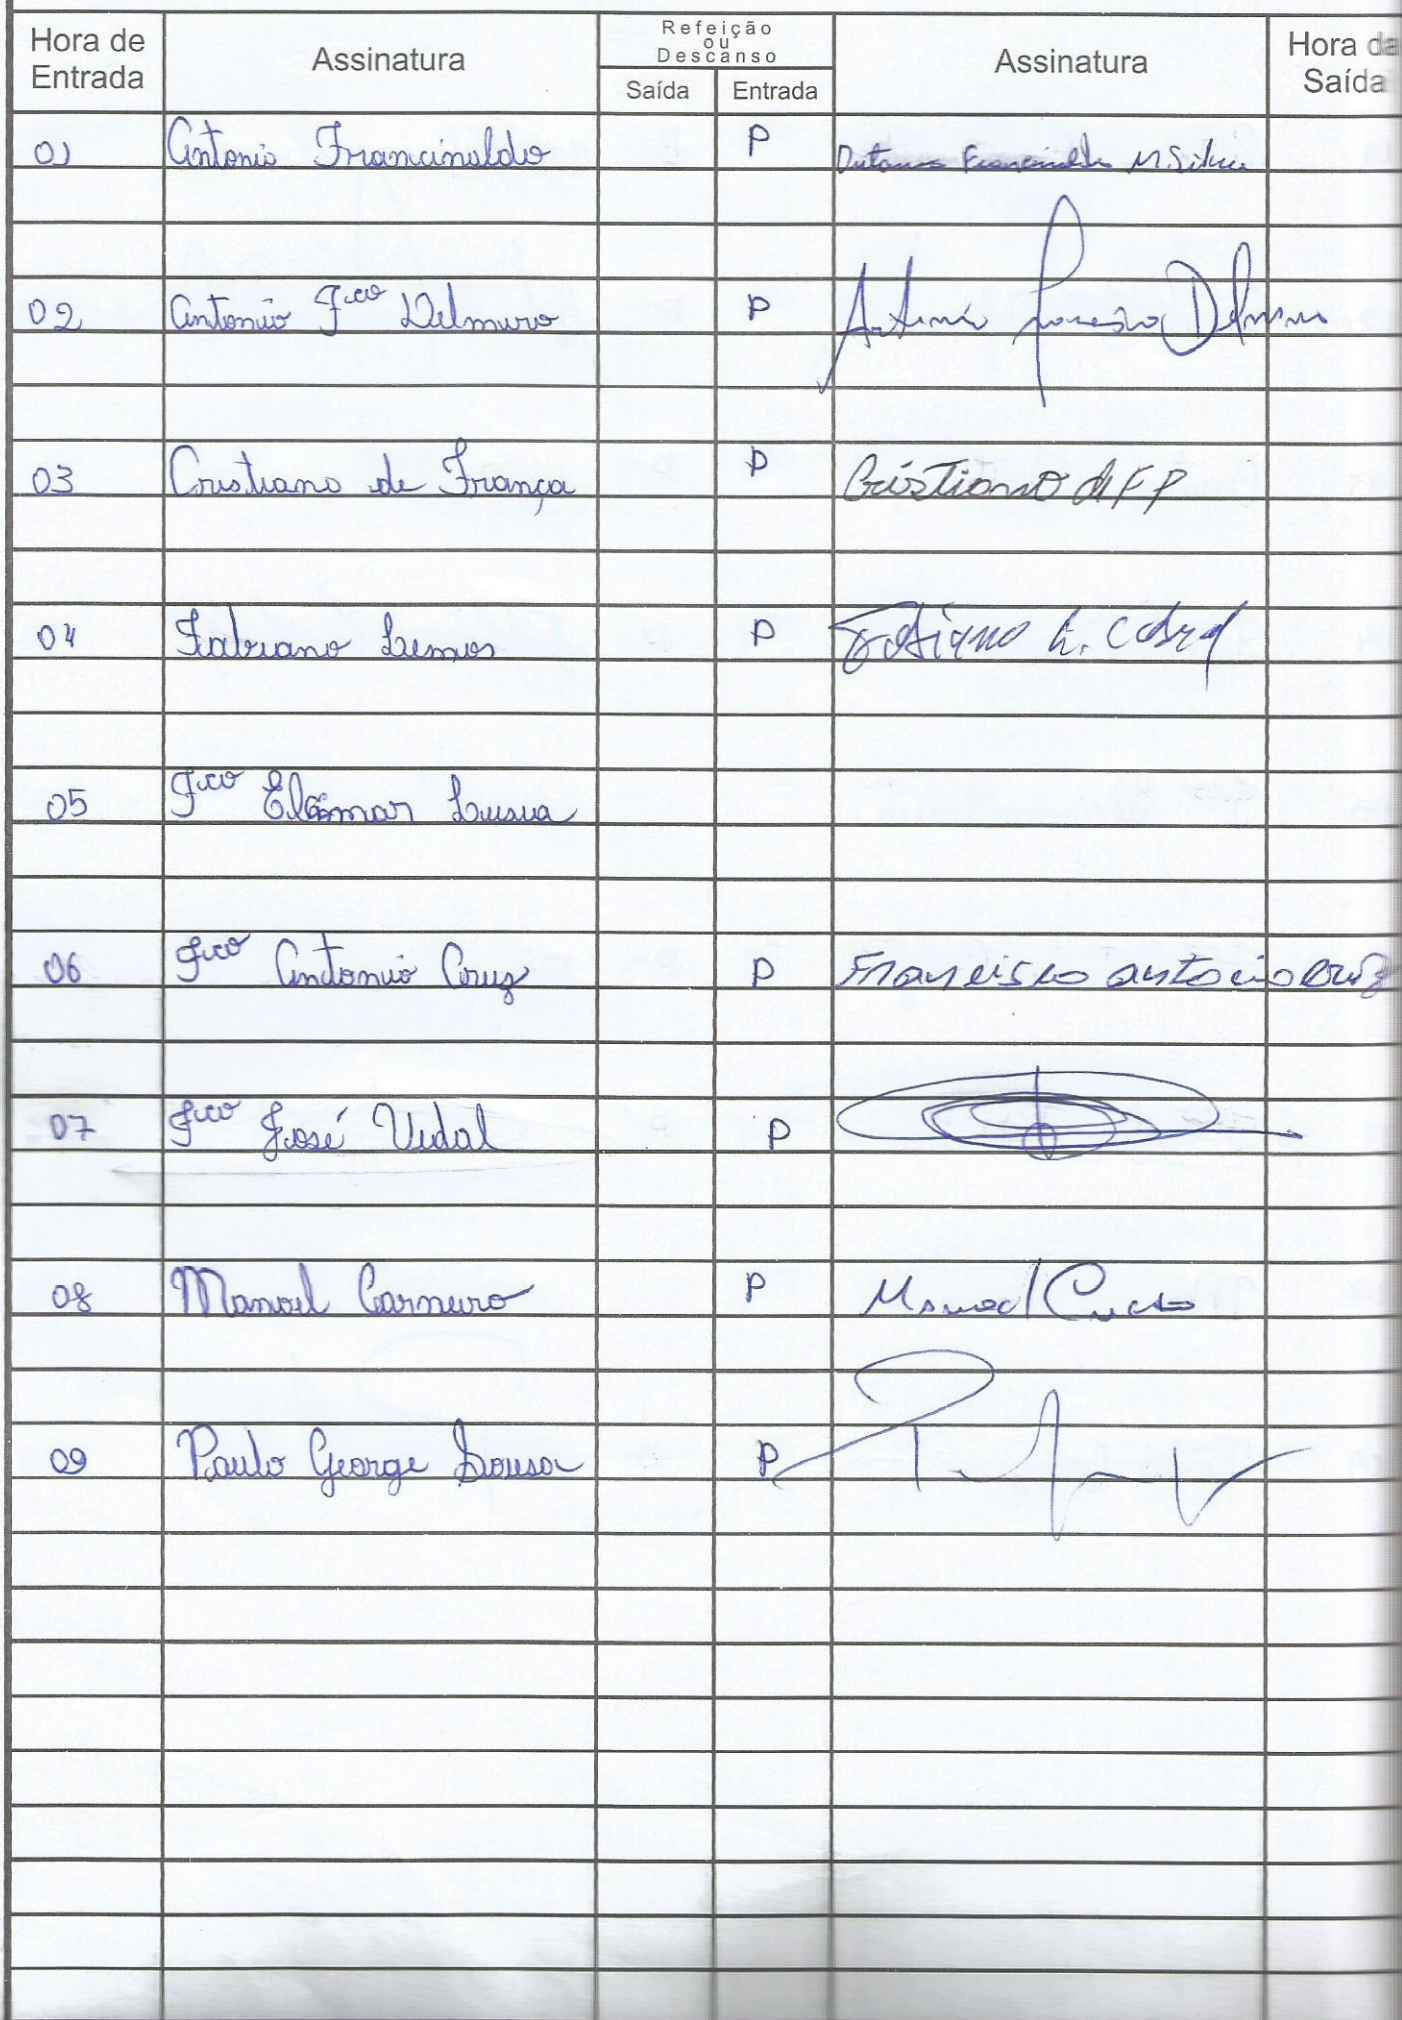 Hora de Entrada Assinatura Refeição ou Descanso Saída Entrada Assinatura Hora da Saída
01 Antonio Francinaldo P Francinaldo M. Silva
02 Antonio Fco Delmiro P Antonio Delmiro
03 Cristiano de França P Cristiano de F P
04 Fabiano Lemos P Fabiano L. Cabral
05 Fco Elcimar
06 Fco Antonio Cruz P Francisco antonio cruz
07 Fco José Vidal P
08 Manoel Carneiro P Manoel
09 Paulo George Sousa P